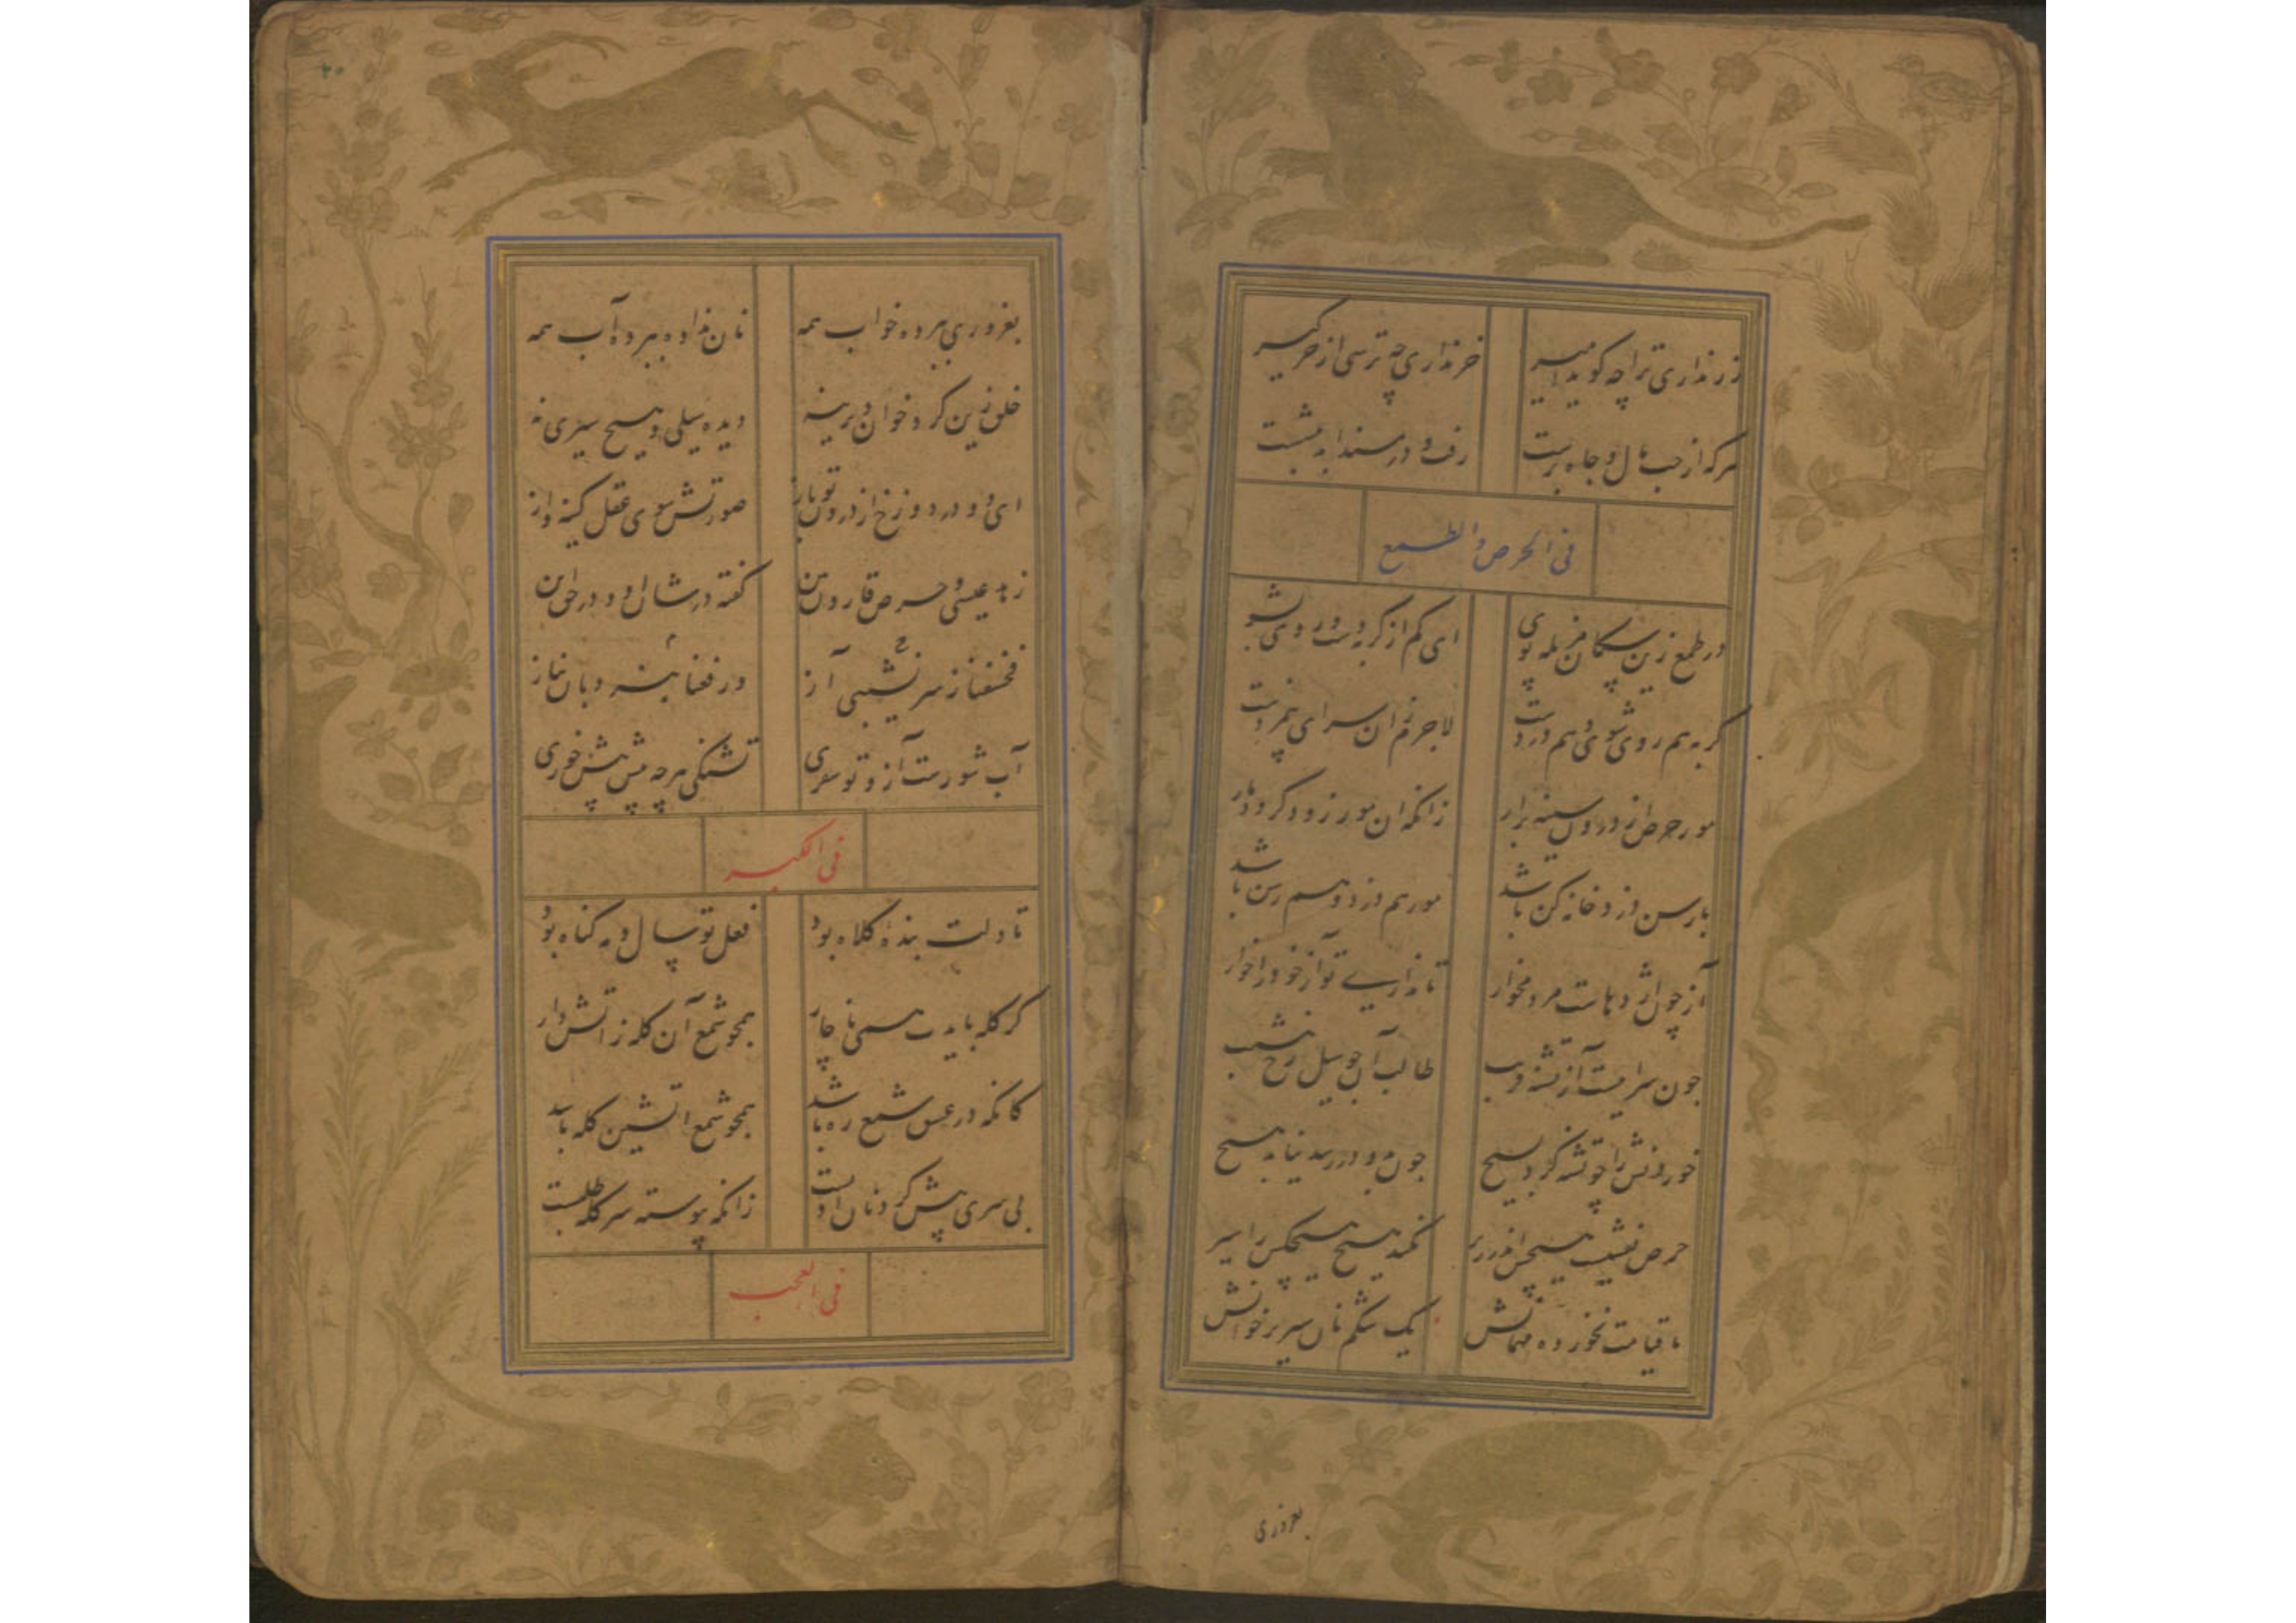 زر نداری ترا چه گوید میر
خر نداری چه ترسی از خرگیر
هرکه از حب مال و جاه برست
رفت و در مسند ابد بنشست
فی الحرص والطمع
در طمع زین سگان مزبله پوی
ای کم از گربه دست و روی بشوی
گربه هم روی شوی و هم دزدست
لاجرم زان سرای بی مزدست
مور حرص از درون سینه برآر
زانکه آن مور زود گردد مار
مارسن دزد خانه کن باشد
مور هم دزد و هم رسن باشد
آز چون اژدهاست مردم خوار
تا نداری تو آز خود را خوار
چون سرابیست آز تشنه فریب
طالب آب چو سیل رخ بنشیب
خوردنش را چو تشنه کرد بسیح
چون بدو در رسد نیابد هیچ
حرص نقشیست هیچش اندر زیر
نکند هیچ هیچکس را سیر
تا قیامت نخورده مهمانش
یک شکم نان سیر بر خوانش
بعروری
بعروری ببرده خواب همه
نان نداده ببرده آب همه
خلق زین گرد خوان دیرینه
دیده سیلی و هیچ سیری نه
ای دو در دوزخ از درون تو باز
صورتش سوی عقل کینه و آز
زهد عیسی و حرص قارون بین
گفته در شان او و در حق این
فخسفنا ز سر نشیبی آز
ورفعنا بنه دبان نیاز
آب شورست آز و تو سفری
تشنگی هرچه بیش بیش خوری
فی الکبر
تا دلت بنده کلاه بود
فعل تو سال و مه گناه بود
گر کله بایدت همی ناچار
همچو شمع آن کله ز آتش دار
کانکه در عشق شمع ره باشد
همچو شمع آتشین کله باشد
بی سری پیش گردنان ادبست
زانکه پیوسته سر کله طلبست
فی العجب